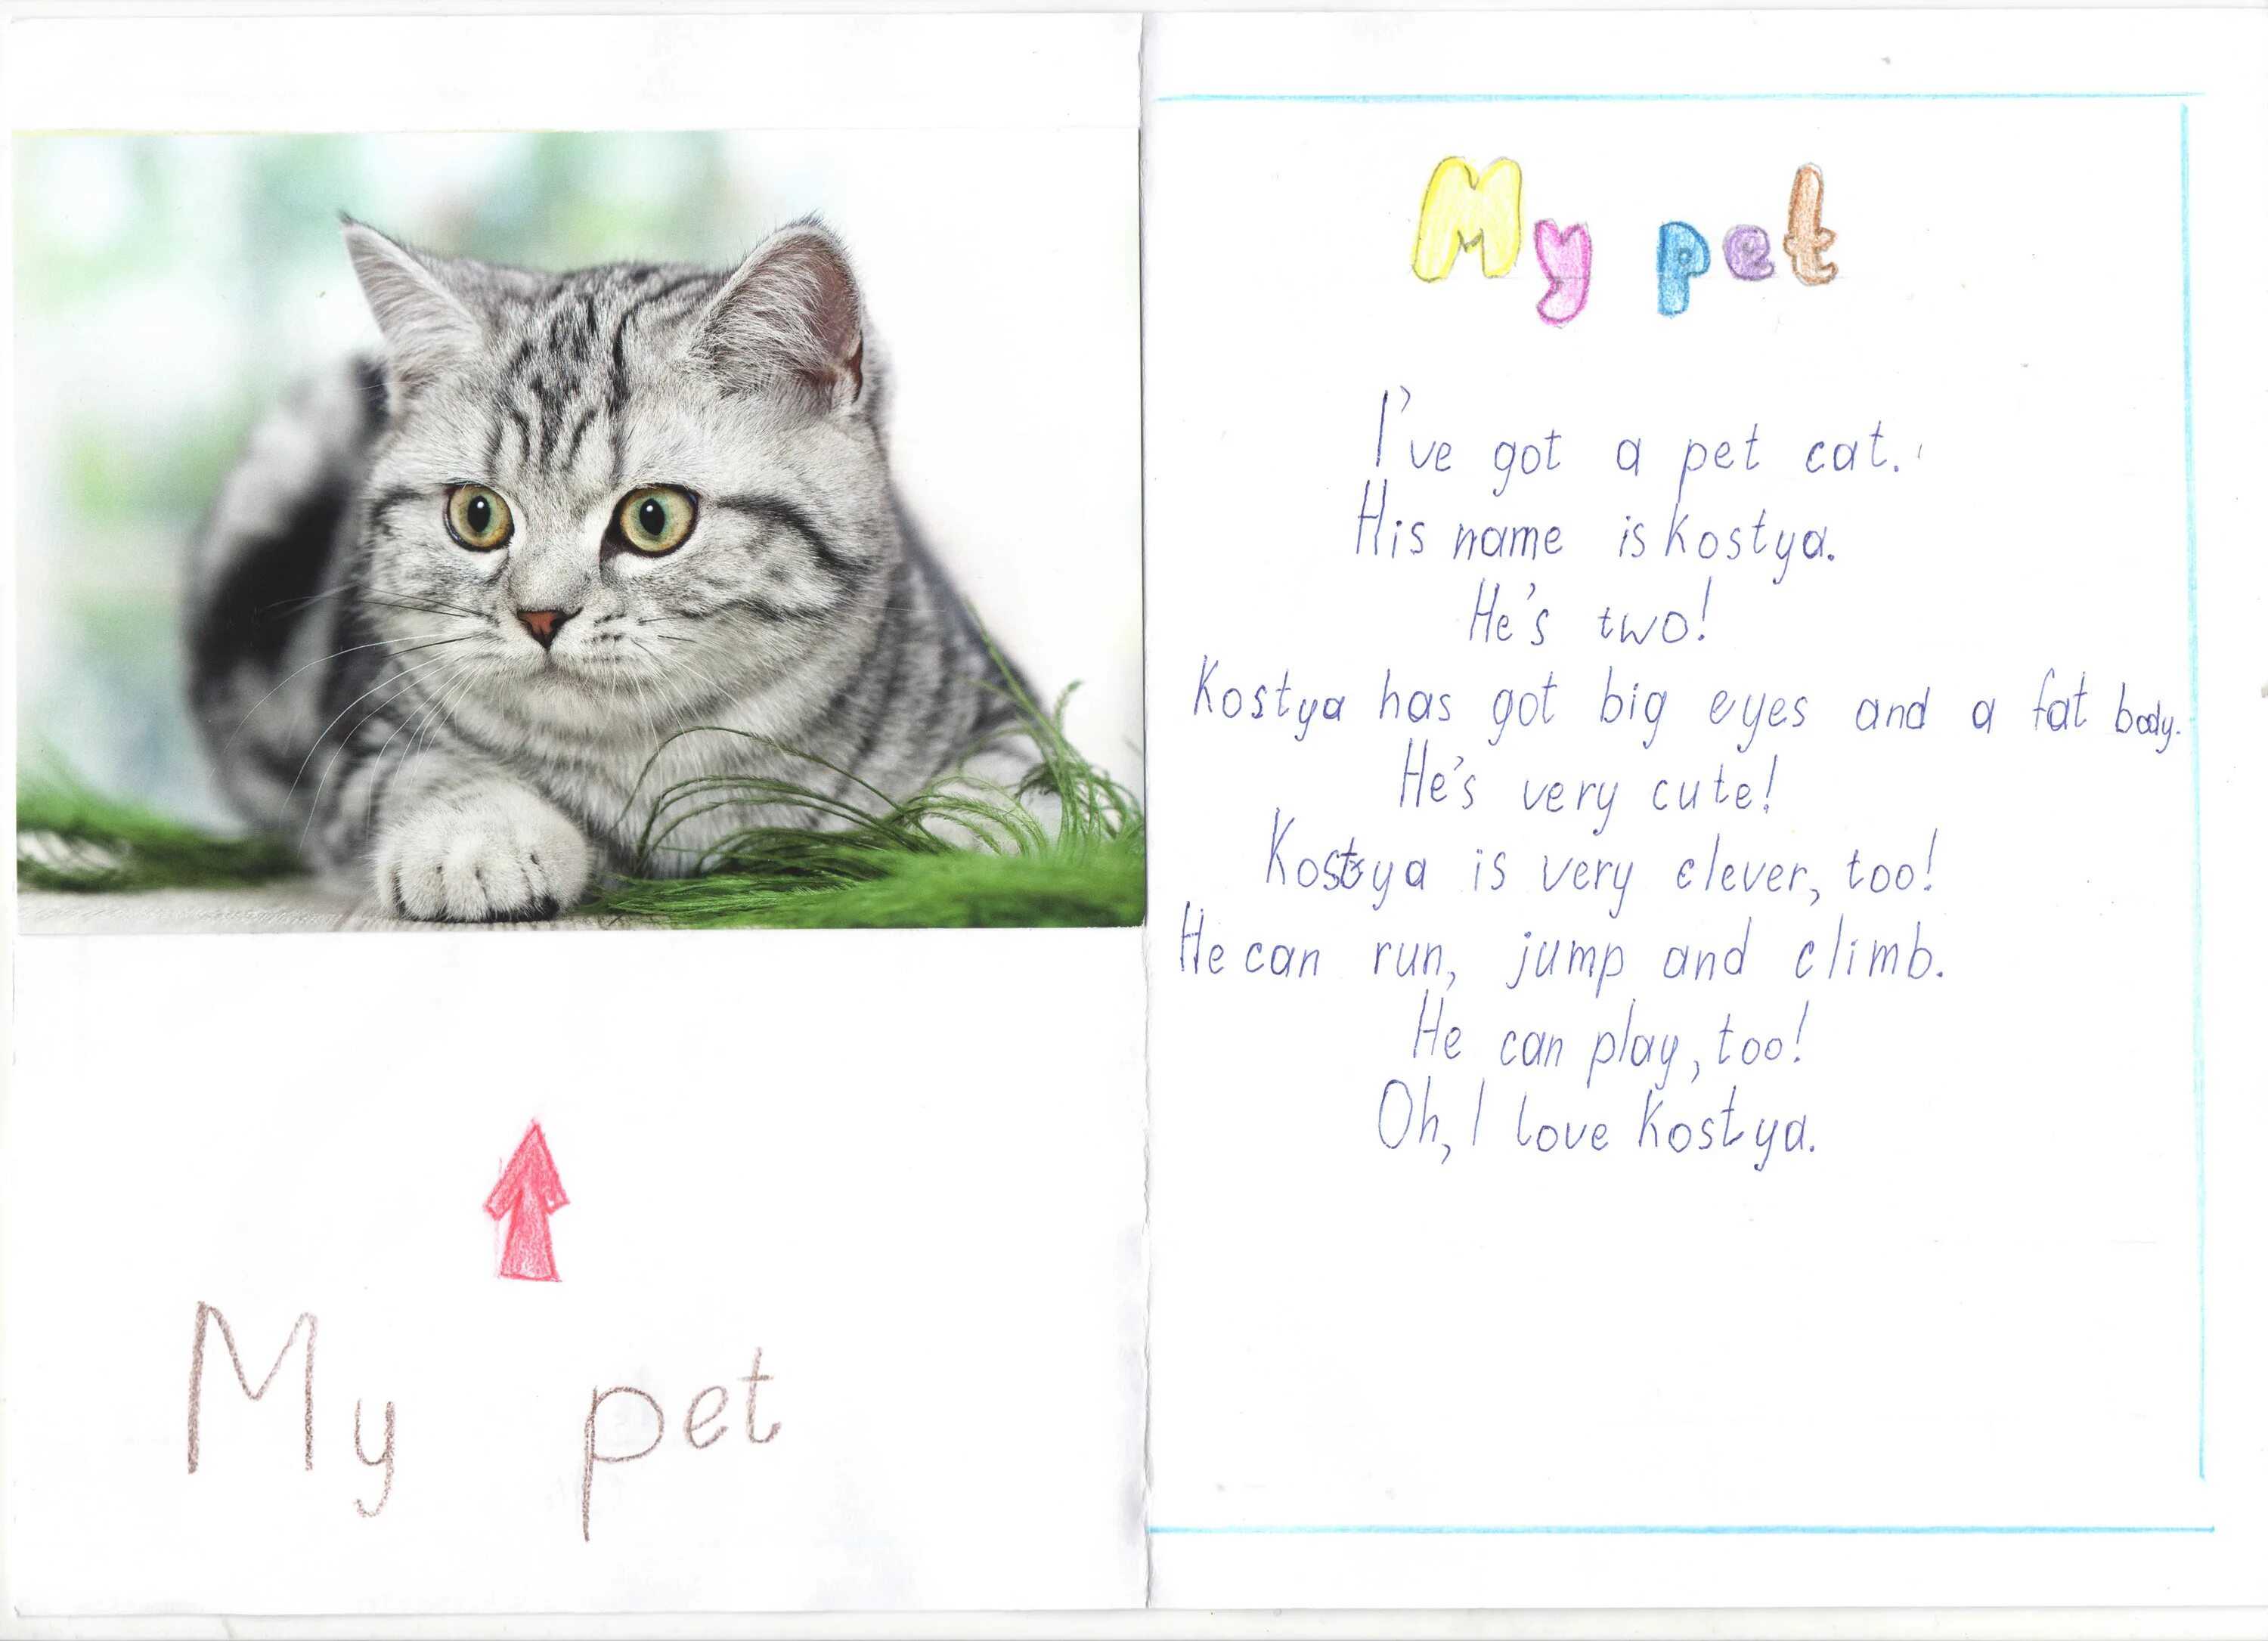 My pet
My pet
I've got a pet cat.
His name is Kostya.
He's two!
Kostya has got big eyes and a fat body.
He's very cute!
Kostya is very clever, too!
He can run, jump and climb.
He can play, too!
Oh, I love Kostya.